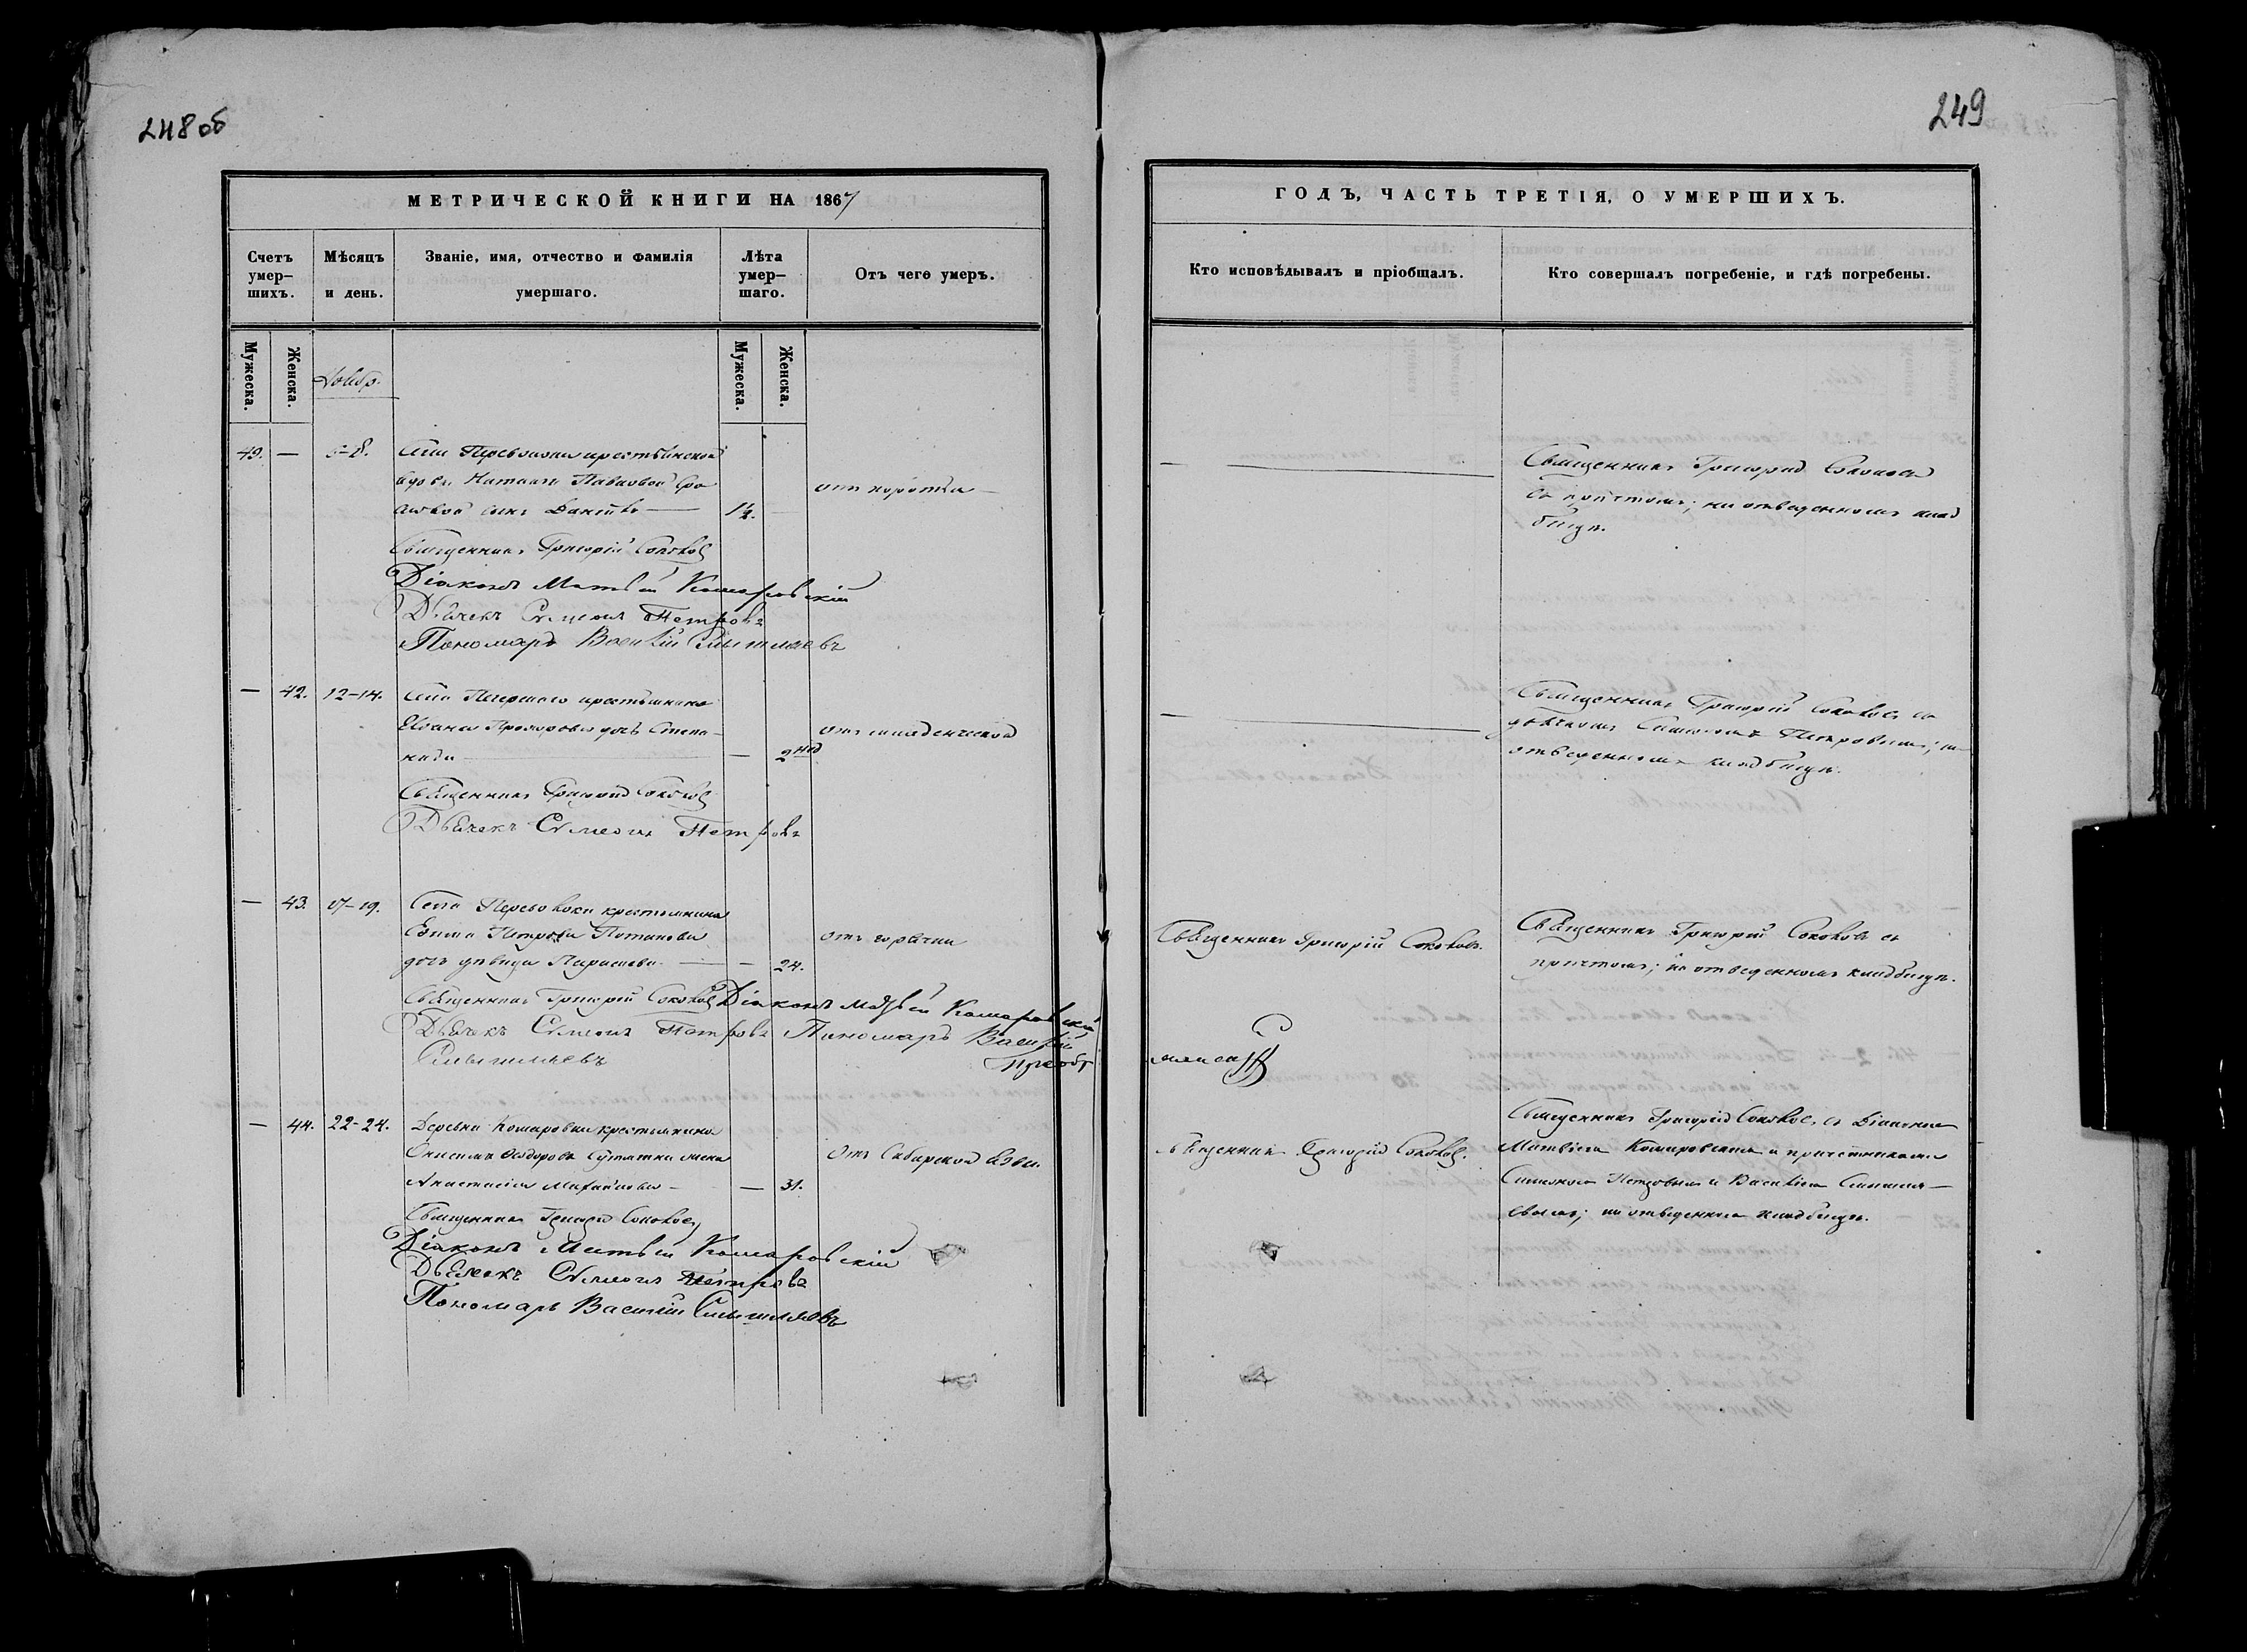 248 об
МЕТРИЧЕСКОЙ КНИГИ НА 1867
Счетъ умер-шихъ.
Мѣсяцъ и день.
Званіе, имя, отчество и фамилія умершаго.
Лѣта умер-шаго.
Отъ чего умеръ.
Мужеска.
Женска.
Мужеска.
Женска.
Ноябр.
49. — 6-8. Села Перевозки крестьянской
вдовы Наталіи Павловой
сынъ Данiилъ — 1½.
отъ поноса —
Священникъ Григорій Соколов
Діаконъ Матвѣй Комаровскій
Дьячекъ Симеонъ Петровъ
Пономарь Василій Смышляевъ
— 42. 12-14. Села крестьянина
Прохорова дочь Степа-
нида — — 2 нед
отъ младенческой
Священникъ Григорій Соколов
Дьячекъ Симеонъ Петровъ
— 43. 17-19. Села Перевозки крестьянина
Ефима Петрова Потапова
дочь дѣвица Параскева — — 24.
отъ горячки
Священникъ Григорій Соколов Діаконъ Матвѣй Комаровскій
Дьячекъ Симеонъ Петровъ Пономарь Василій
Смышляевъ
— 44. 22-24. Деревни Комаровки крестьянина
Онисима Ѳедорова жена
Анастасія Михайлова — — 31.
отъ Сибирской язвы.
Священникъ Григорій Соколов
Діаконъ Матвѣй Комаровскій
Дьячекъ Симеонъ Петровъ
Пономарь Василій Смышляевъ
249
ГОДЪ, ЧАСТЬ ТРЕТІЯ, О УМЕРШИХЪ.
Кто исповѣдывалъ и пріобщалъ.
Кто совершалъ погребеніе, и гдѣ погребены.
Священникъ Григорій Соколовъ
съ причтомъ; на отведенномъ клад
бищѣ.
Священникъ Григорій Соколовъ съ
дьячкомъ Симеономъ Петровымъ; на
отведенномъ кладбищѣ.
Священникъ Григорій Соколовъ.
Священникъ Григорій Соколовъ съ
причтомъ; на отведенномъ кладбищѣ.
Священникъ Григорій Соколов.
Священникъ Григорій Соколовъ съ Діакономъ
Матвѣемъ Комаровскимъ и причетниками
Симеономъ Петровымъ и Василіемъ Смышля-
евымъ; на отведенномъ кладбищѣ.